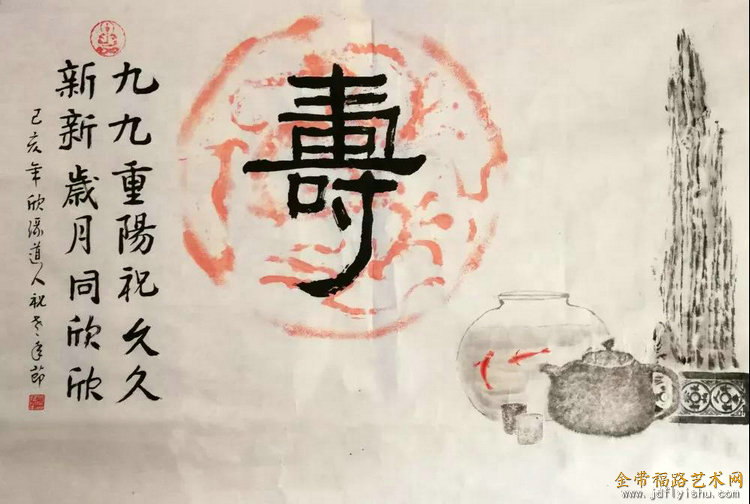 壽
九九重陽祝久久
新新歲月同欣欣
己亥年欣缘道人祝老年節
金带福路艺术网
www.jdflyishu.com